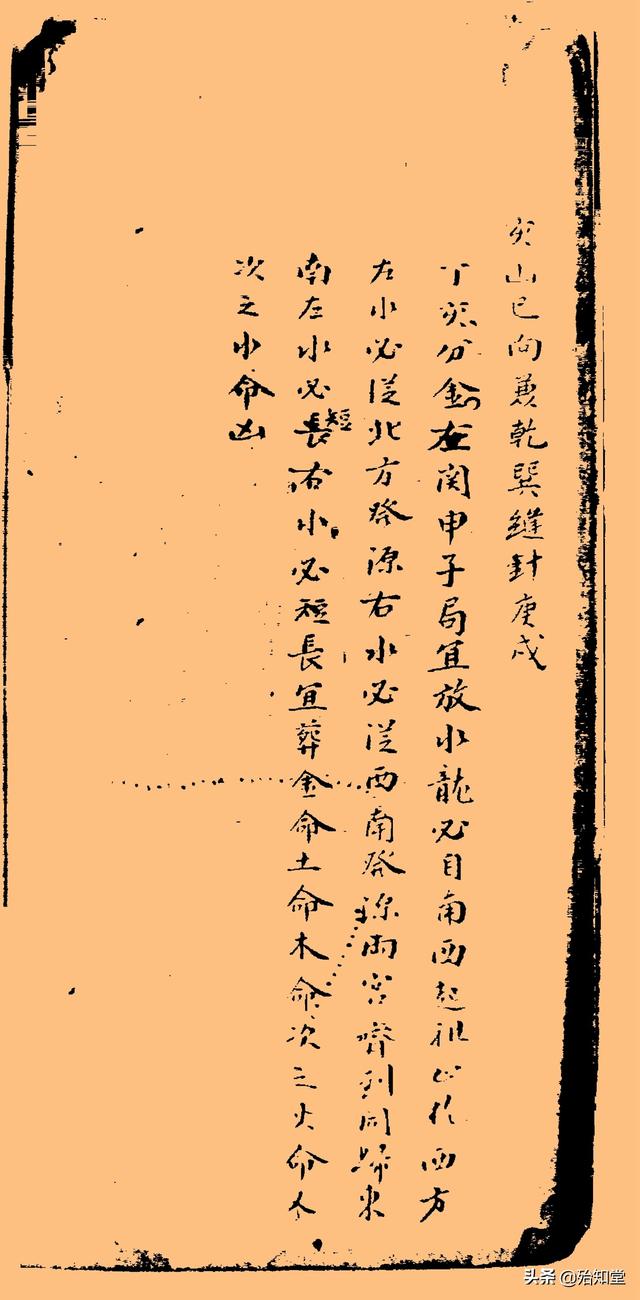 亥山已向兼乾巽縫針庚戌
丁亥分金在関申子局宜放水龍必自南西起祖必於西方
左水必從北方發源右水必從西南發源兩宮齊到同歸東
南左水必長短右水必短長宜葬金命土命木命次之火命
次之水命凶
头条 @殆知堂